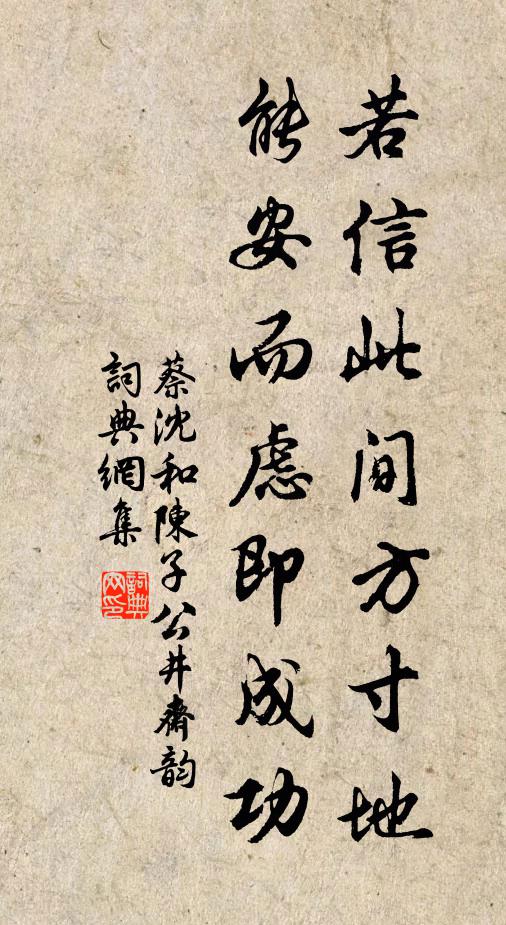 若信此间方寸地
能安而虑即成功
蔡沈和陳子公井齋韵
詞典網集
詞典网印